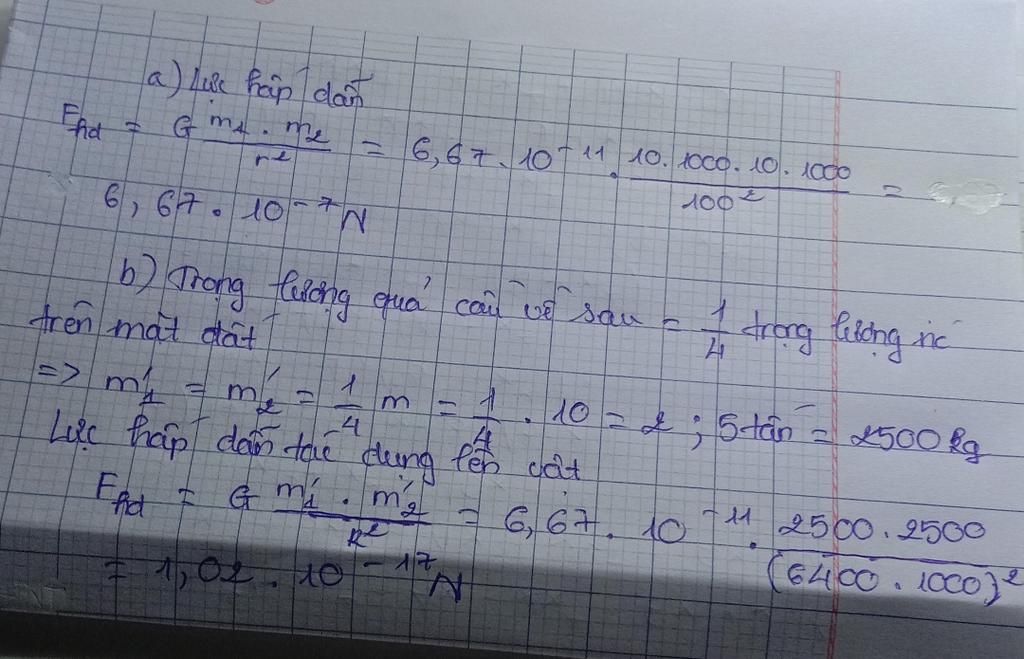 a) Lực hấp dẫn
Fhd = G m1 . m2 / r² = 6,67 . 10⁻¹¹ . 10 . 1000 . 10 . 1000 / 100² =
6,67 . 10⁻⁷ N
b) Trọng lượng quả cầu về sau = 1/4 trọng lượng nó
trên mặt đất
=> m'1 = m'2 = 1/4 m = 1/4 . 10 = 2 ; 5 tấn = 2500 kg
Lực hấp dẫn tác dụng lên vật
Fhd = G m'1 . m'2 / R² = 6,67 . 10⁻¹¹ . 2500 . 2500 / (6400 . 1000)²
= 1,02 . 10⁻¹⁷ N